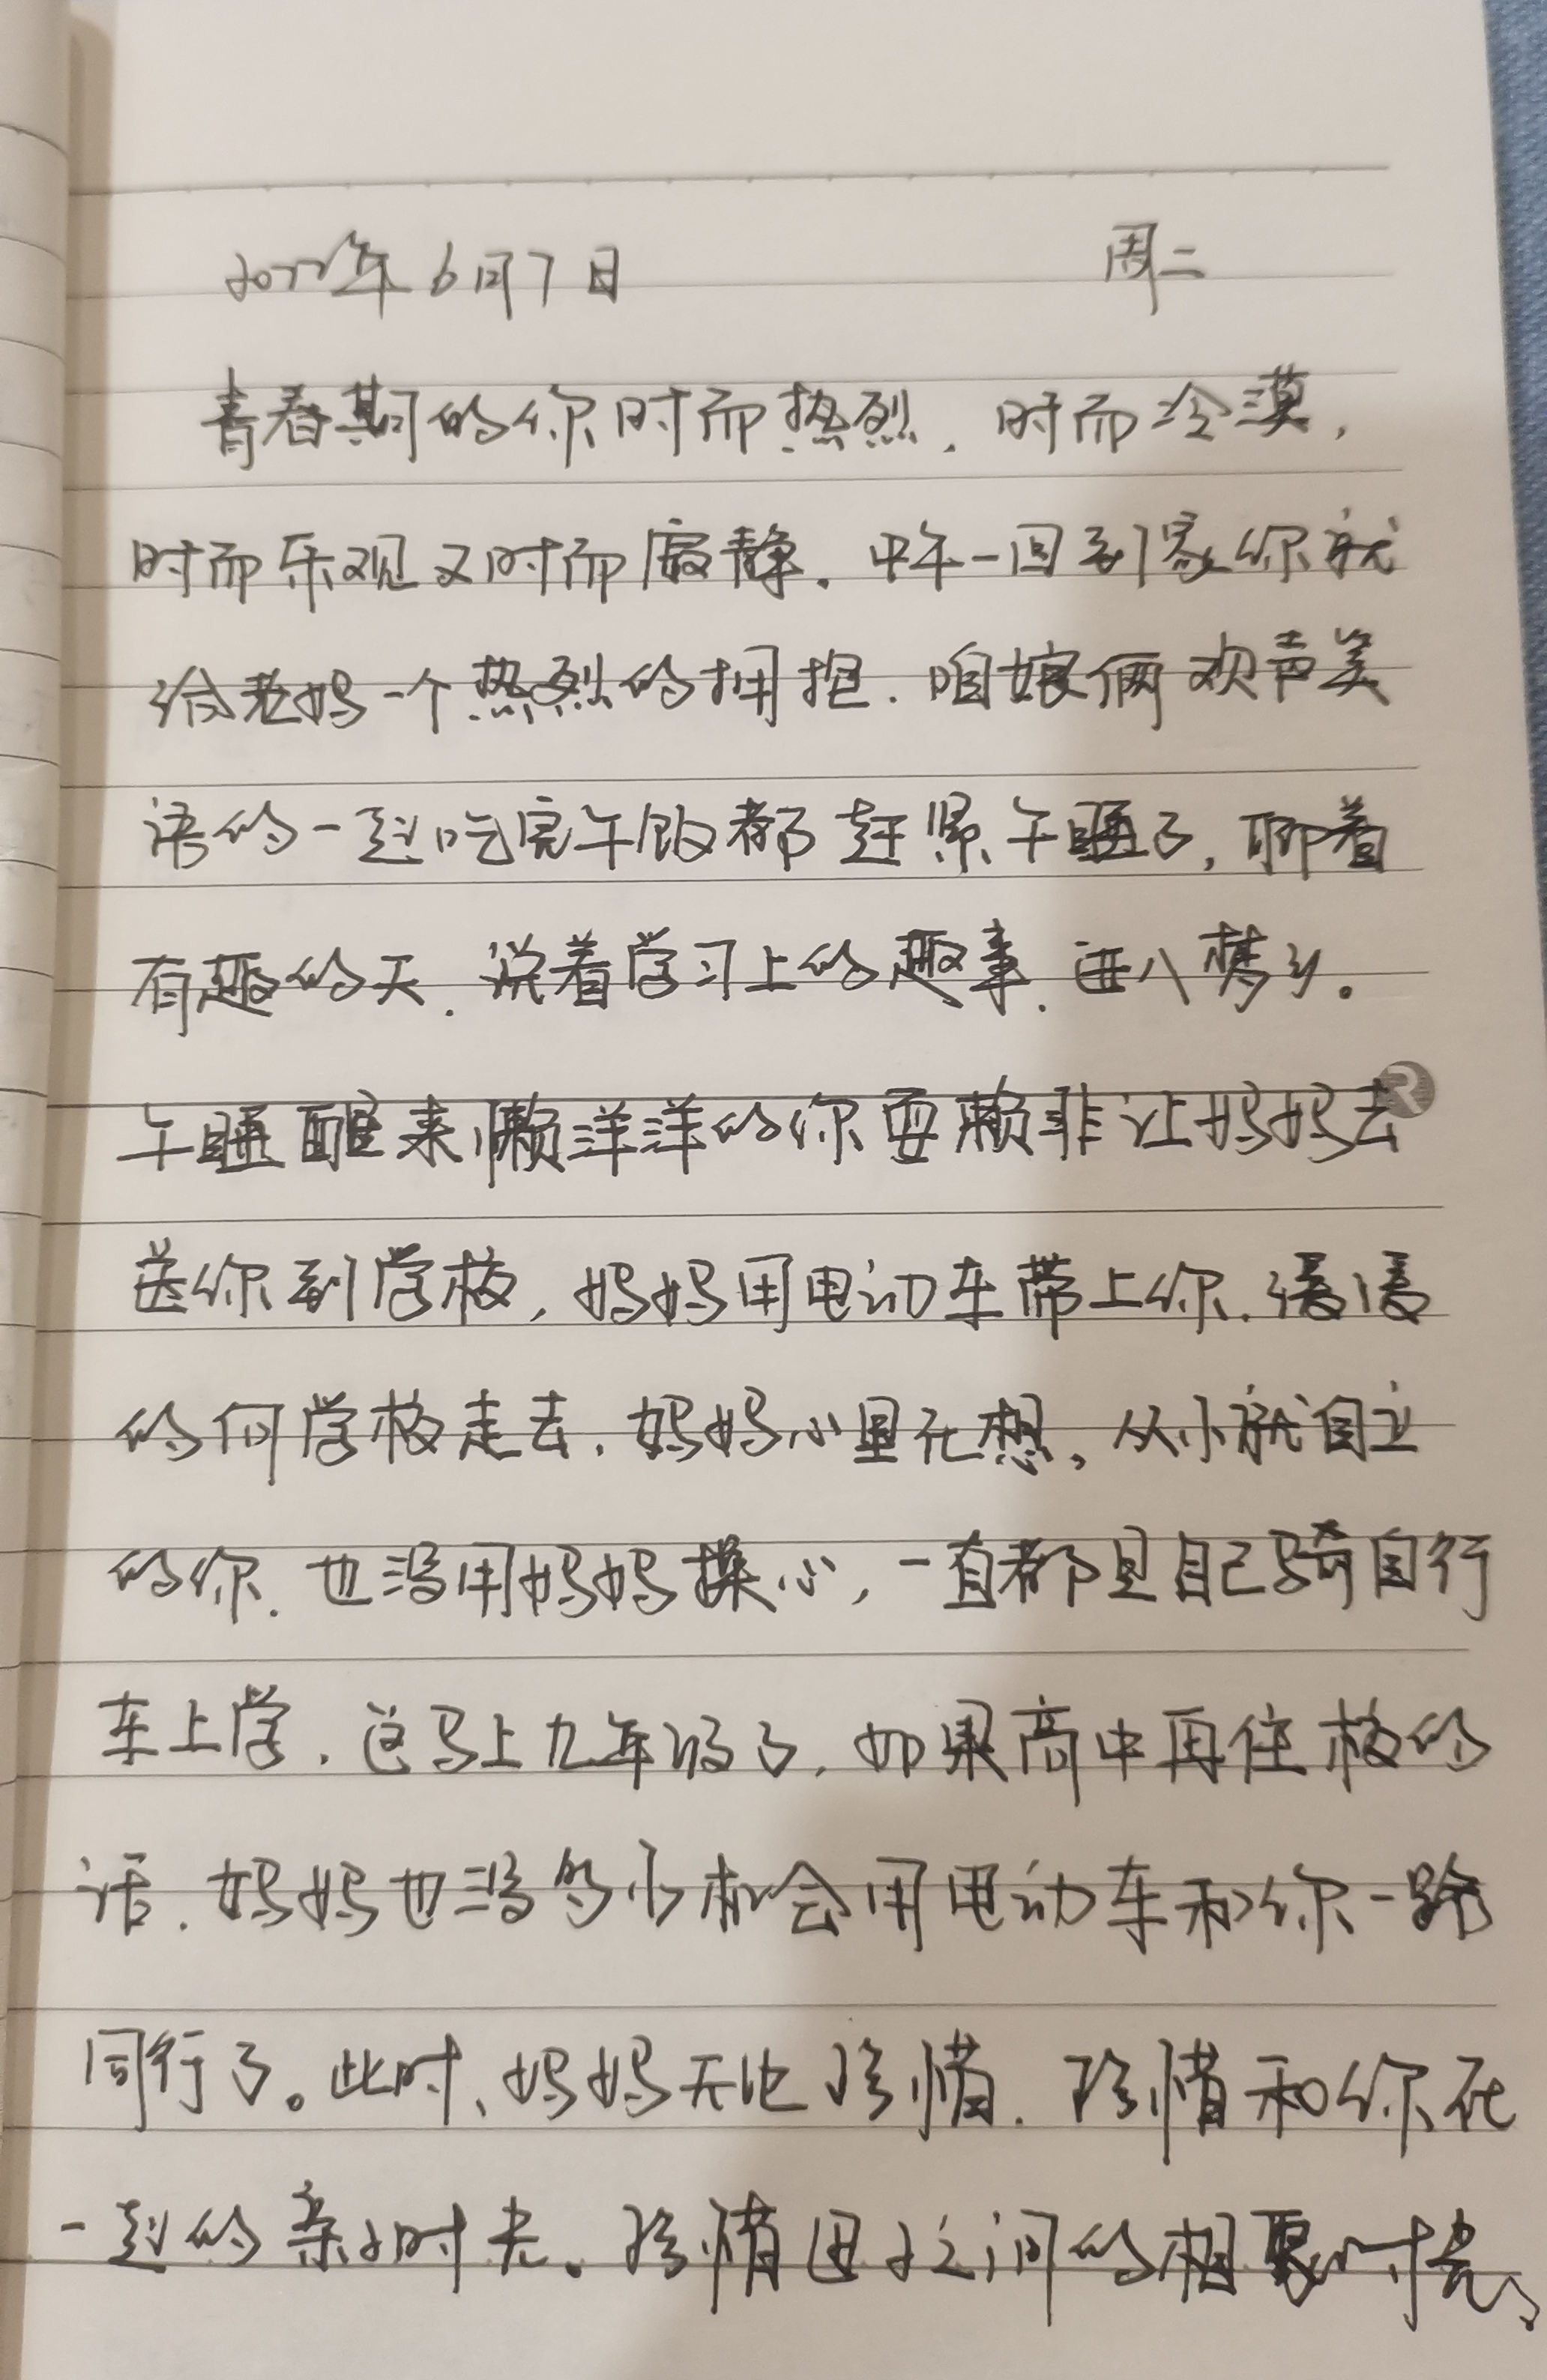 2022年6月7日 周二
青春期的你时而热烈，时而冷漠，
时而乐观又时而寂静。中午一回到家你就
给老妈一个热烈的拥抱。咱娘俩欢声笑
语的一起吃完午饭都赶紧午睡了，聊着
有趣的天，说着学习上的趣事，进入梦乡。
午睡醒来懒洋洋的你耍赖非让妈妈去
送你到学校，妈妈用电动车带上你，慢慢
的向学校走去，妈妈心里在想，从小就自立
的你，也没用妈妈操心，一直都是自己骑自行
车上学，这马上九年级了，如果高中再住校的
话，妈妈也没多少机会用电动车和你一路
同行了。此时，妈妈无比珍惜，珍惜和你在
一起的亲子时光。珍惜母子之间的相聚时光，